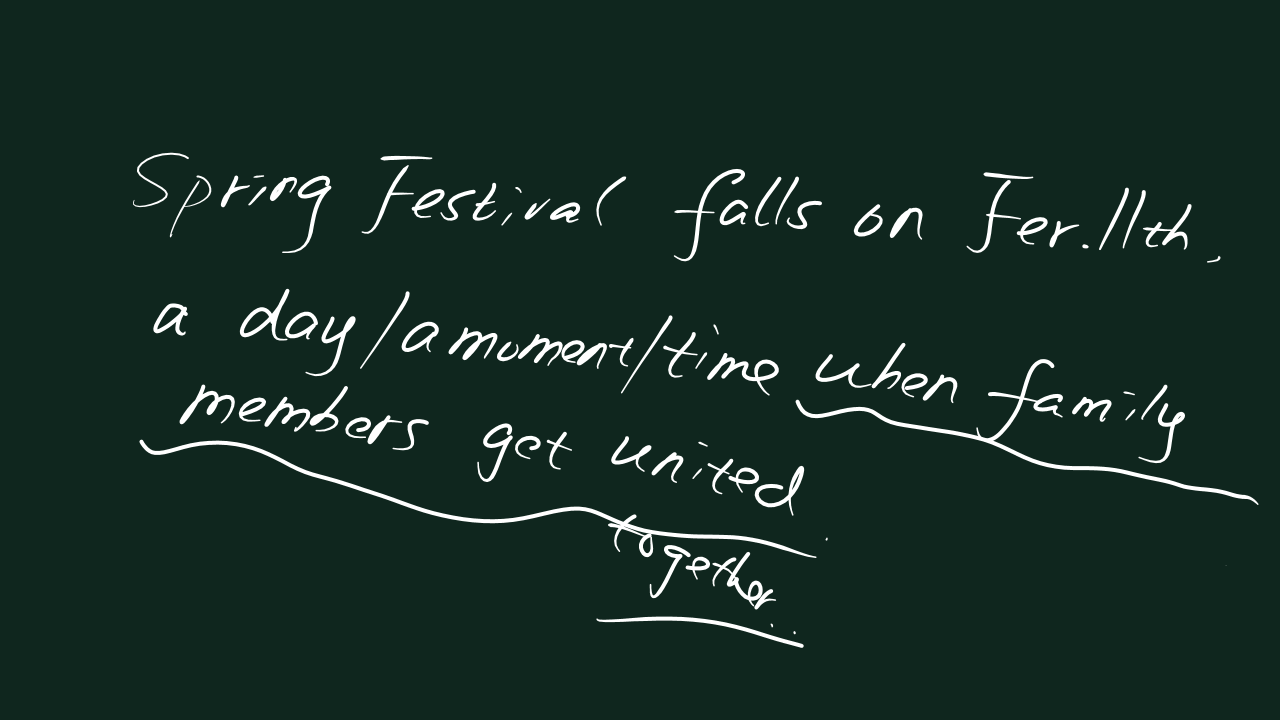 Spring Festival falls on Fer.11th,
a day/a moment/time when family
members get united
together.